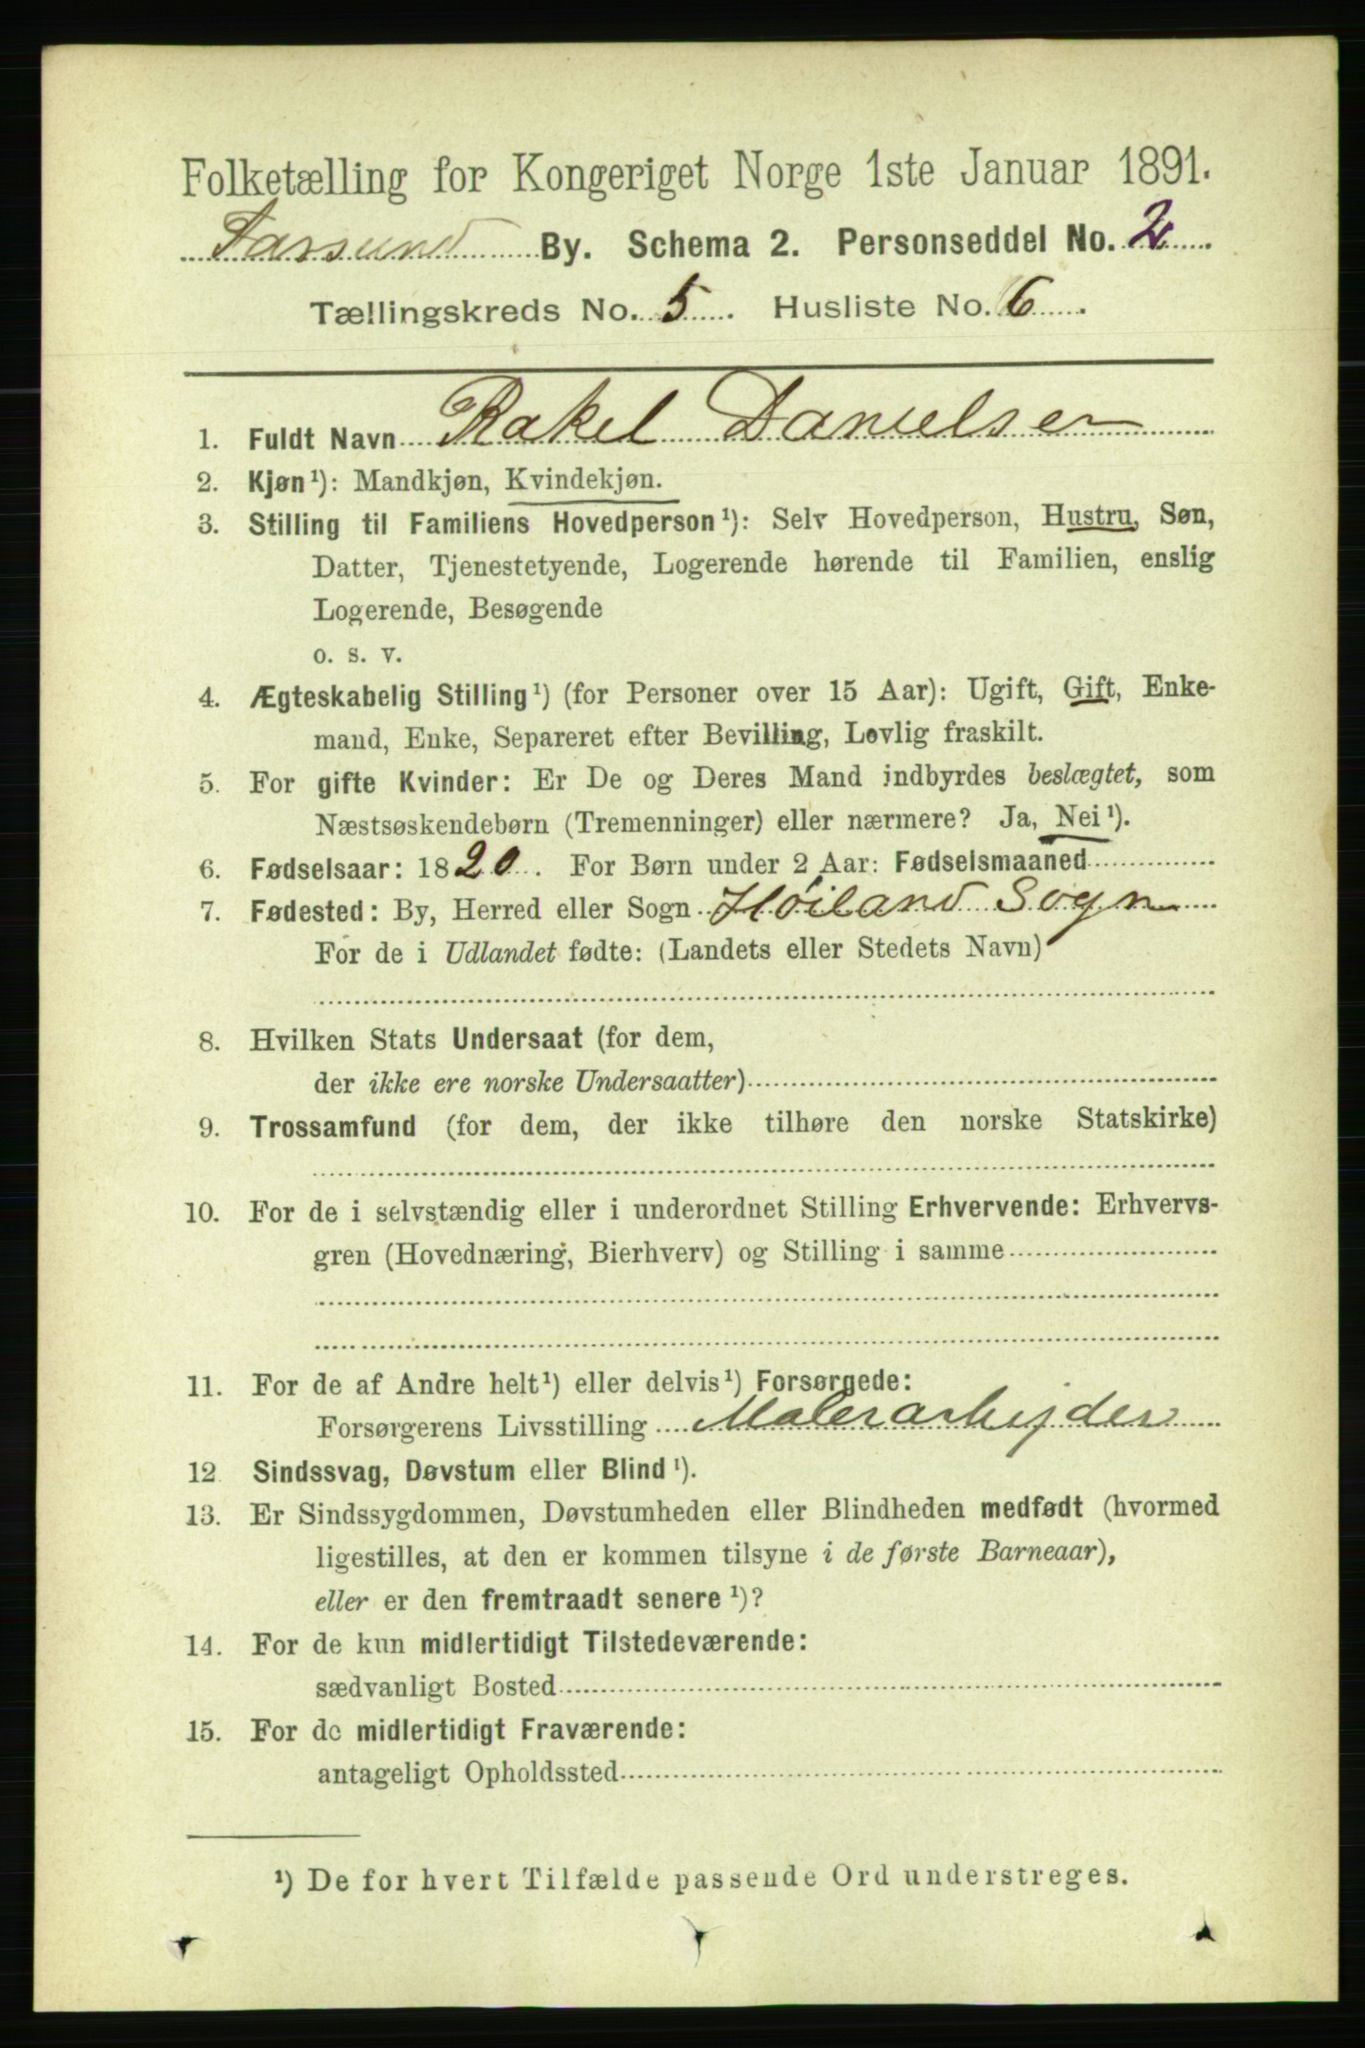 Folketælling for Kongeriget Norge 1ste Januar 1891.
Farsund By. Schema 2. Personseddel No. 2
Tællingskreds No. 5. Husliste No. 6.
1. Fuldt Navn Rakel Danielsen
2. Kjøn¹): Mandkjøn, Kvindekjøn.
3. Stilling til Familiens Hovedperson¹): Selv Hovedperson, Hustru, Søn,
Datter, Tjenestetyende, Logerende hørende til Familien, enslig
Logerende, Besøgende
o. s. v.
4. Ægteskabelig Stilling¹) (for Personer over 15 Aar): Ugift, Gift, Enke-
mand, Enke, Separeret efter Bevilling, Lovlig fraskilt.
5. For gifte Kvinder: Er De og Deres Mand indbyrdes beslægtet, som
Næstsøskendebørn (Tremenninger) eller nærmere? Ja, Nei¹).
6. Fødselsaar: 1820. For Børn under 2 Aar: Fødselsmaaned
7. Fødested: By, Herred eller Sogn Höiland Sogn
For de i Udlandet fødte: (Landets eller Stedets Navn)
8. Hvilken Stats Undersaat (for dem,
der ikke ere norske Undersaatter)
9. Trossamfund (for dem, der ikke tilhøre den norske Statskirke)
10. For de i selvstændig eller i underordnet Stilling Erhvervende: Erhvervs-
gren (Hovednæring, Bierhverv) og Stilling i samme
11. For de af Andre helt¹) eller delvis¹) Forsørgede:
Forsørgerens Livsstilling Malerarbejder
12. Sindssvag, Døvstum eller Blind¹).
13. Er Sindssygdommen, Døvstumheden eller Blindheden medfødt (hvormed
ligestilles, at den er kommen tilsyne i de første Barneaar),
eller er den fremtraadt senere¹)?
14. For de kun midlertidigt Tilstedeværende:
sædvanligt Bosted
15. For de midlertidigt Fraværende:
antageligt Opholdssted
¹) De for hvert Tilfælde passende Ord understreges.